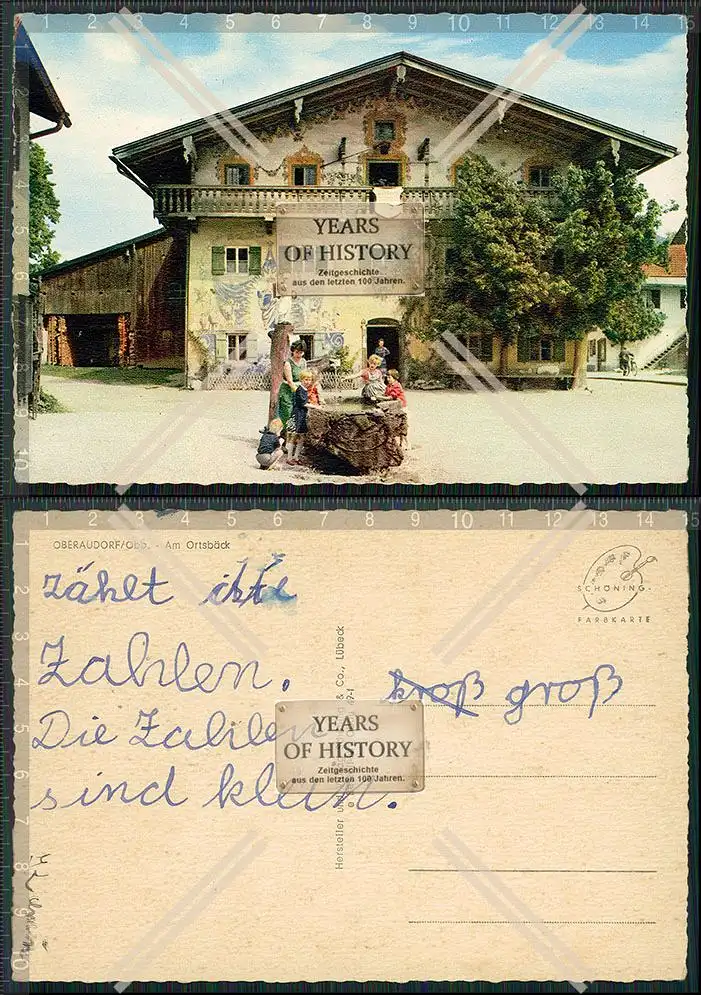 1 2 3 4 5 6 7 8 9 10 11 12 13 14 15
YEARS
OF HISTORY
Zeitgeschichte
aus den letzten 100 Jahren.
1 2 3 4 5 6 7 8 9 10 11 12 13 14 15
OBERAUDORF/Obb. - Am Ortsbäck
SCHÖNING-
FARBKARTE
zählt
Zahlen.
kroß groß
Die Zahlen
sind klein.
YEARS
OF HISTORY
Zeitgeschichte
aus den letzten 100 Jahren.
Hersteller und & Co., Lübeck